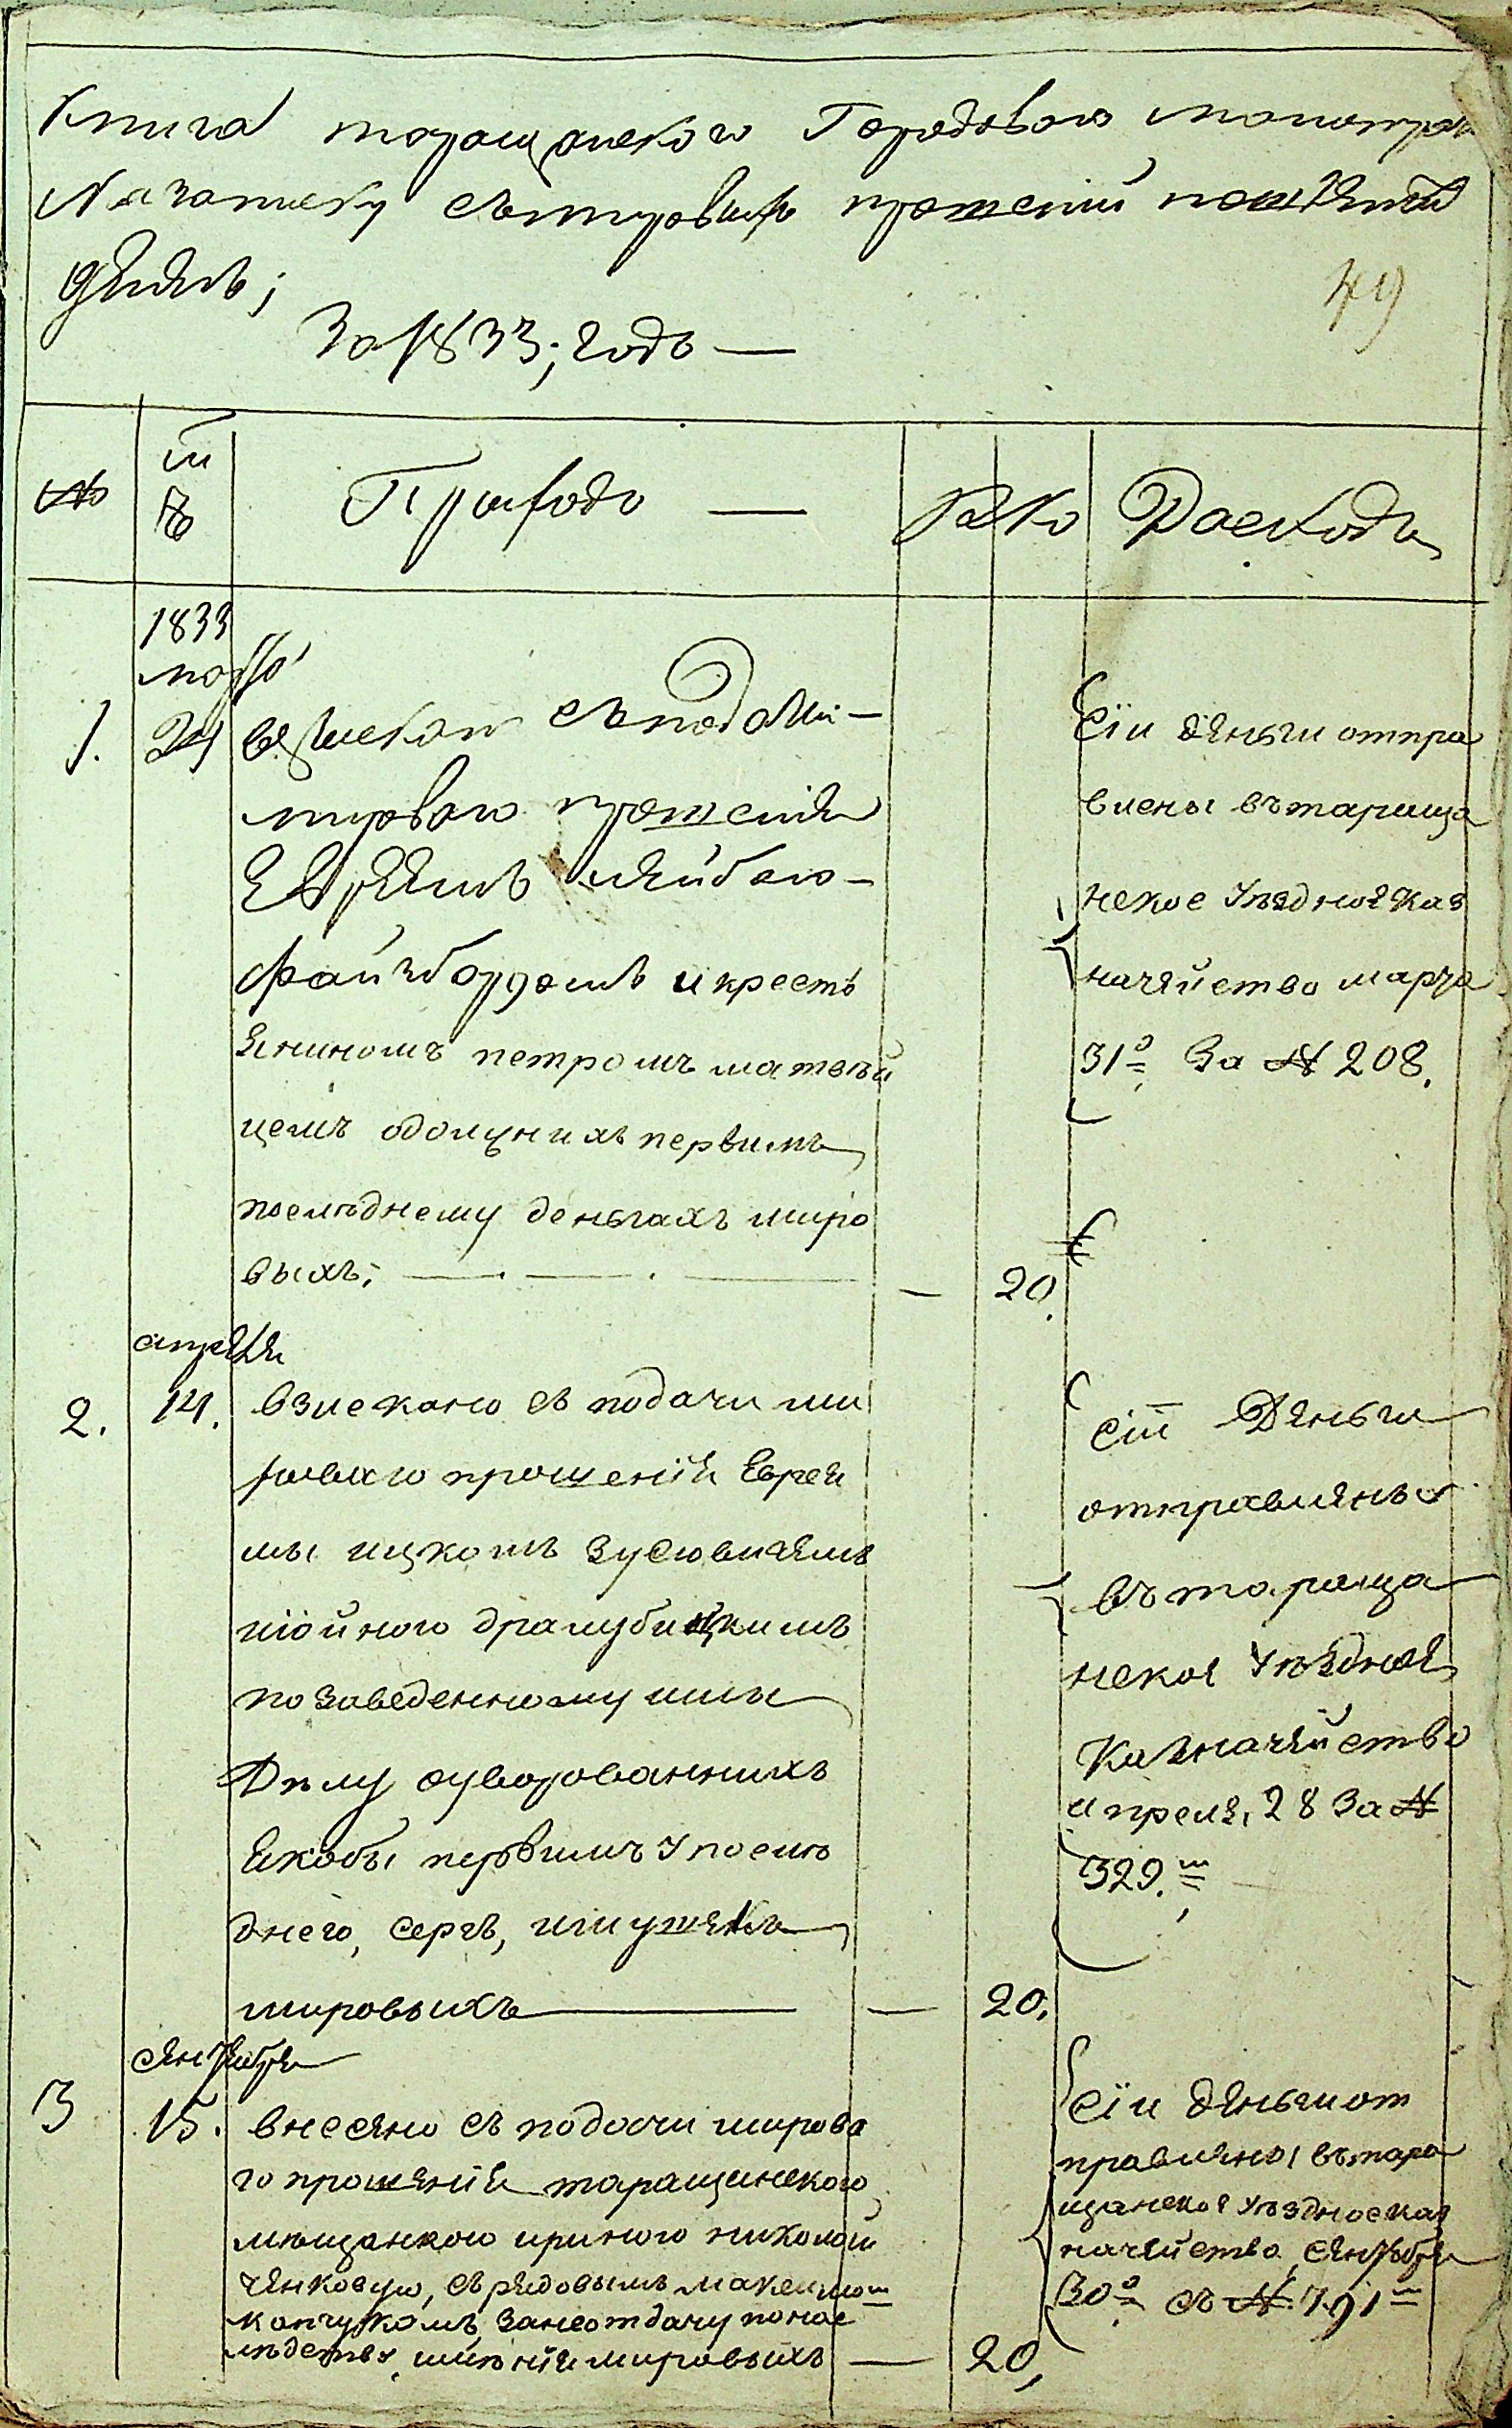 Книга таращанского Городового магистра
На записку съ мировыхъ прошений пошленнихъ
денегъ;
49
За 1833; годъ —
№
Приходъ —
Р Ко
Расходъ
1833
марта
1. 24 взискано съ подачи ми-
мирового прошения
Евреемъ лейбою
файнбордомъ и кресть
яниномъ петромъ матвей
цемъ одолжнихъ первимъ
последнему деньгахъ миро
выхъ; — — — — 20.
Сіи деньги отпра
влены въ тараща
нское Уъздное каз
начейство марта
31го За № 208.
апреля
2. 14. взискано съ подачи ми
роваго прошения Еврея
мы ицкомъ зусьовичемъ
дралубицкимъ
по заведенному ими
Дълу сувороованнихъ
якобы первимъ У послъ
днего, сергъ,
мировыхъ — — 20.
Сіи Деньги
отправлены
въ тараща
нское Уъздное
Казначейство
апреля, 28 За №
329.м
сентября
3 15. внесено съ подачи мирова
го прошения таращанского
мъщанкою ириною николай
ченковую, съ рядовымъ максимом
капчукомъ, за неотдачу по нас
лъдству имъния мировыхъ — 20,
Сіи деньги от
правлены въ тара
щанское Уъздное каз
начейство сентября
30го съ № 791м